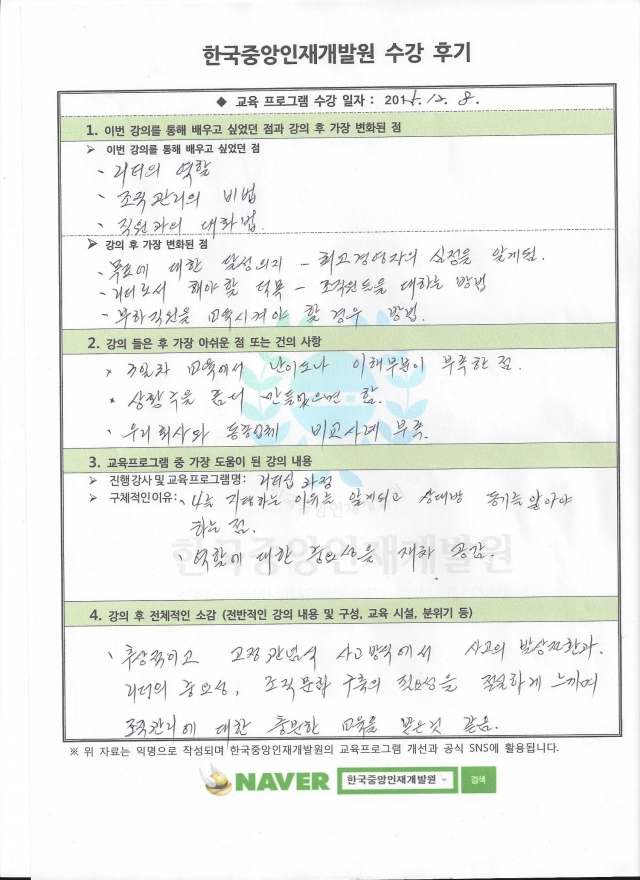 한국중앙인재개발원 수강 후기
◆ 교육 프로그램 수강 일자 : 201 . 12. 8.
1. 이번 강의를 통해 배우고 싶었던 점과 강의 후 가장 변화된 점
➢ 이번 강의를 통해 배우고 싶었던 점
、리더의 역할
、조직관리의 비법
、직원과의 대화법.
➢ 강의 후 가장 변화된 점
、목표에 대한 달성의지 - 최고경영자의 심정을 알게됨.
、리더로서 해야할 덕목 - 조직원들을 대하는 방법
、부하직원을 교육시켜야 할 경우 방법.
2. 강의 들은 후 가장 아쉬운 점 또는 건의 사항
× 교육에서 이해부분이 부족한 점.
× 상황 만들었으면 함.
、우리회사와 동종업체 비교사례 부족.
3. 교육프로그램 중 가장 도움이 된 강의 내용
➢ 진행강사 및 교육프로그램명: 리더십 과정
➢ 구체적인이유: 、나를 이유를 알게되고 상대방 동기를 알아야
하는 점.
、역할에 대한 중요성을 재차 공감.
한국중앙인재개발원
4. 강의 후 전체적인 소감 (전반적인 강의 내용 및 구성, 교육 시설, 분위기 등)
、추상적이고 고정관념식 사고방식에서 사고의 발상전환과.
리더의 중요성, 조직문화 구축의 필요성을 절실하게 느끼며
조직관리에 대한 충분한 교육을 받은것 같음.
※ 위 자료는 익명으로 작성되며 한국중앙인재개발원의 교육프로그램 개선과 공식 SNS에 활용됩니다.
NAVER 한국중앙인재개발원 검색